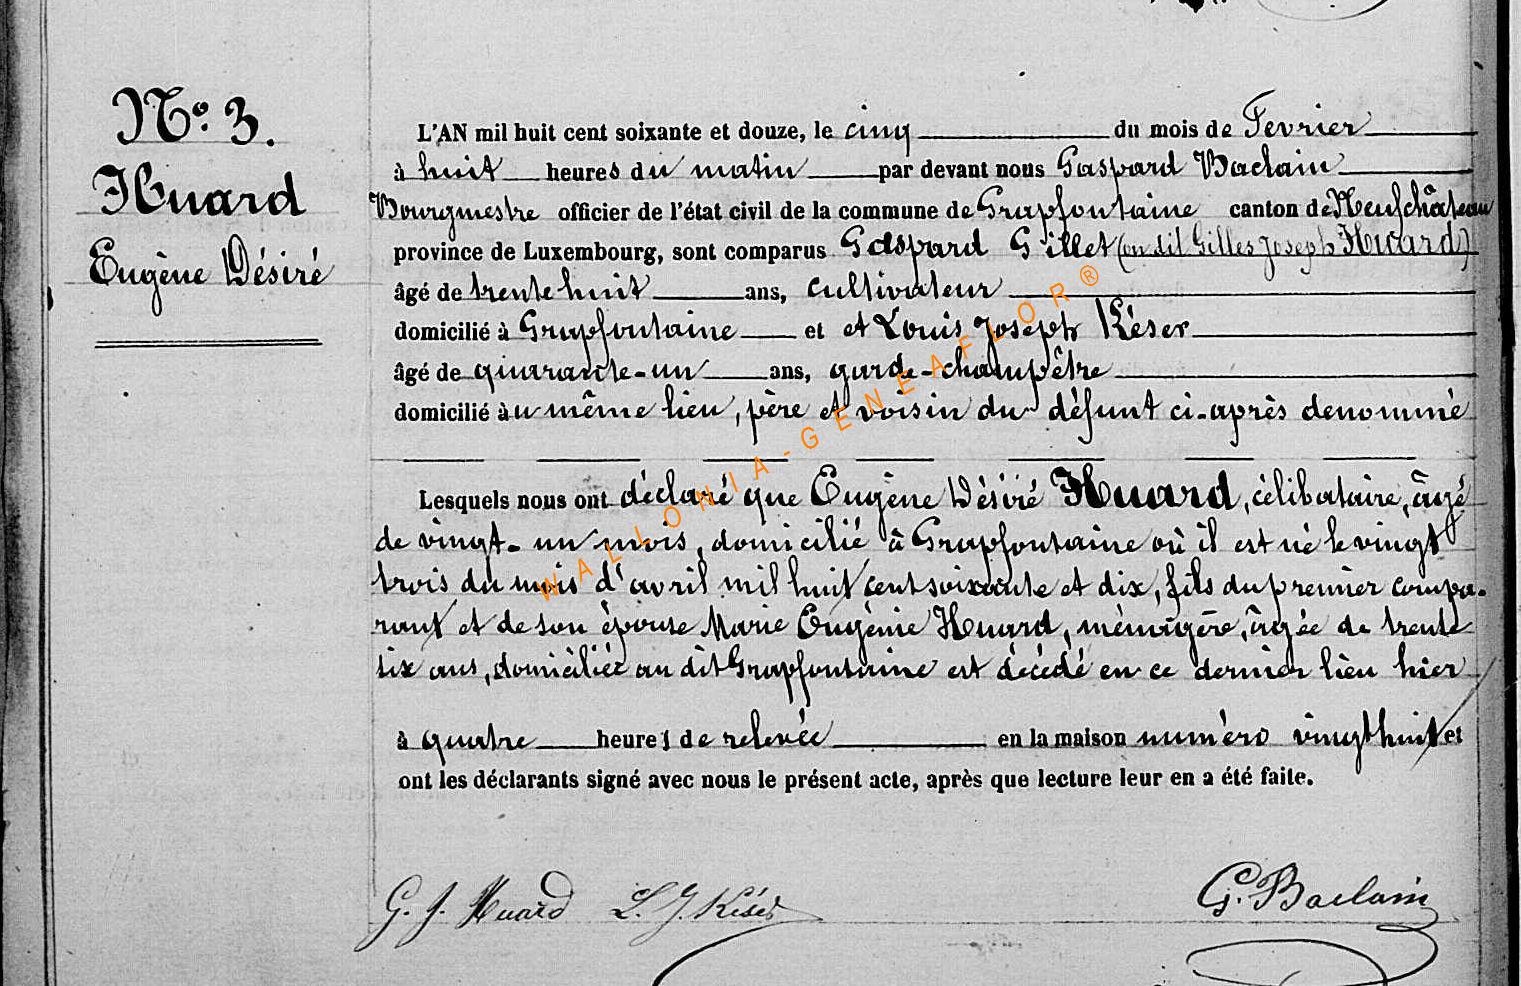 N.º 3.
Huard
Eugène Désiré
L'AN mil huit cent soixante et douze, le cinq du mois de Fevrier
à huit heures du matin par devant nous Gaspard Baclain
Bourgmestre officier de l'état civil de la commune de Grapfontaine canton de Neufchâteau
province de Luxembourg, sont comparus Gaspard Gillet (on dit Gilles Joseph Huard)
âgé de trente huit ans, cultivateur
domicilié à Grapfontaine et et Louis Joseph Késer
âgé de quarante-un ans, garde-champêtre
domicilié au même lieu, père et voisin du défunt ci-après denommé
Lesquels nous ont déclaré que Eugène Désiré Huard, célibataire, âgé
de vingt-un mois, domicilié à Grapfontaine où il est né le vingt
trois du mois d'avril mil huit cent soixante et dix, fils du premier compa-
rant et de son épouse Marie Eugénie Huard, ménagère, âgée de trente
six ans, domiciliée au dit Grapfontaine est décédé en ce dernier lieu hier
à quatre heures de relevée en la maison numéro vingt huit et
ont les déclarants signé avec nous le présent acte, après que lecture leur en a été faite.
G. J. Huard L. J. Késer G. Baclain
WALLONIA-GENEAFLOR®